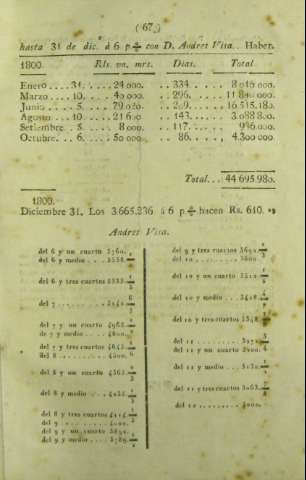 (67)
hasta 31 de dic. á 6 p.% con D. Andres Visa.. Haber.
1800. Rls. vn. mrs. Dias. Total
Enero....31.....24 000. ..334..... 8 016 000.
Marzo....10.....40 000. ..296..... 11 840 000.
Junio.....5.....79 020. ..209..... 16 515.180.
Agosto...10.....21 600 ..143..... 3 088 800.
Setiembre..5..... 8 000. ..117..... 936 000.
Octubre...6.....50 000. .. 86..... 4,300 000
Total... 44 695 980.
1800.
Diciembre 31. Los 3.665.236 á 6 p.% hacen Rs. 610.
Andres Visa.
del 6 y un cuarto 5760.
del 6 y medio ... 5538.
del 6 y tres cuartos 5333.
del 7 ........ 5142
del 7 y un cuarto 4965.
de 7 y medio .... 4800.
del 7 y tres cuartos 4645.
del 8 ......... 4500.
del 8 y un cuarto 4363.
del 8 y medio ... 4235.
del 8 y tres cuartos 4114.
del 9 ......... 4000.
del 9 y un cuarto 3892.
del 9 y medio .... 3789.
del 9 y tres cuartos 3692.
del 10 ......... 3600.
del 10 y un cuarto 3512.
del 10 y medio ... 3428.
del 10 y tres cuartos 3348.
del 11 ......... 3272.
del 11 y un cuarto 3200.
del 11 y medio ... 3130.
del 11 y tres cuartos 3063.
del 12 ......... 3000.